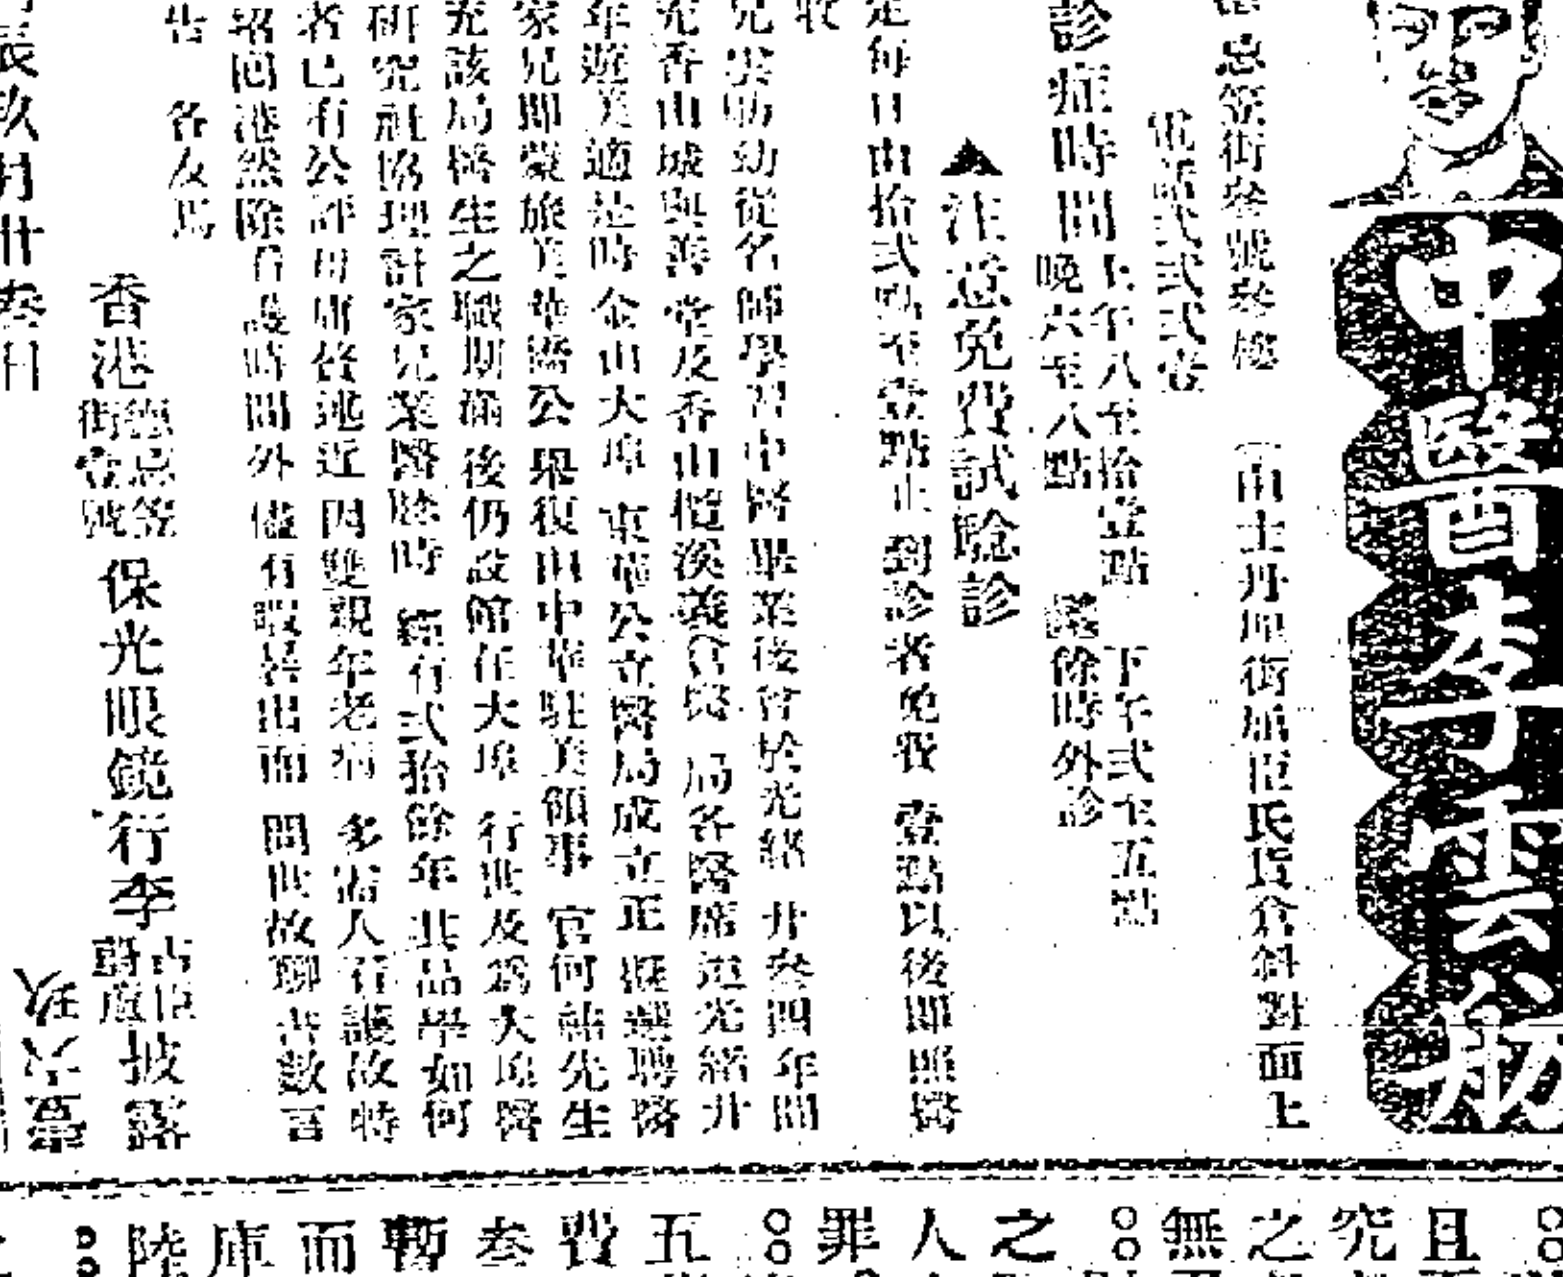 中醫李雲舫
德忌笠街叁號叁樓
(由士丹頓街屈臣氏貨倉斜對面上
電話弍弍弍壹
診症時間
上午八至拾壹點 下午弍至五點
晚六至八點 餘時外診
▲注意免費試驗診
定每日由拾弍點至壹點止 到診者免費 壹點以後即照醫
收
兄雲舫幼從名師學習中醫畢業後曾於光緒廿叁四年間
充香山城與善堂及香山欖溪義倉醫局各醫席迨光緒廿
年遊美適是時金山大埠東華公立醫局成立正擬選聘醫
家兄即蒙旅美華僑公舉復由中華駐美領事官何祐先生
充該局醫生之職期滿後仍設館在大埠行世及為大埠醫
研究社協理計家兄業醫時 經有弍拾餘年其品學如何
者已有公評毋庸啓述近因雙親年老病多需人看護故特
招回港然除看護時間外儘有暇晷出面問世故聊書數言
告 各友焉
香港
德忌笠
街壹號
保光眼鏡行李
披露
玖月廿叁日
且
究
之
無
之
人
罪
五
費
叁
暫
而
庫
陸